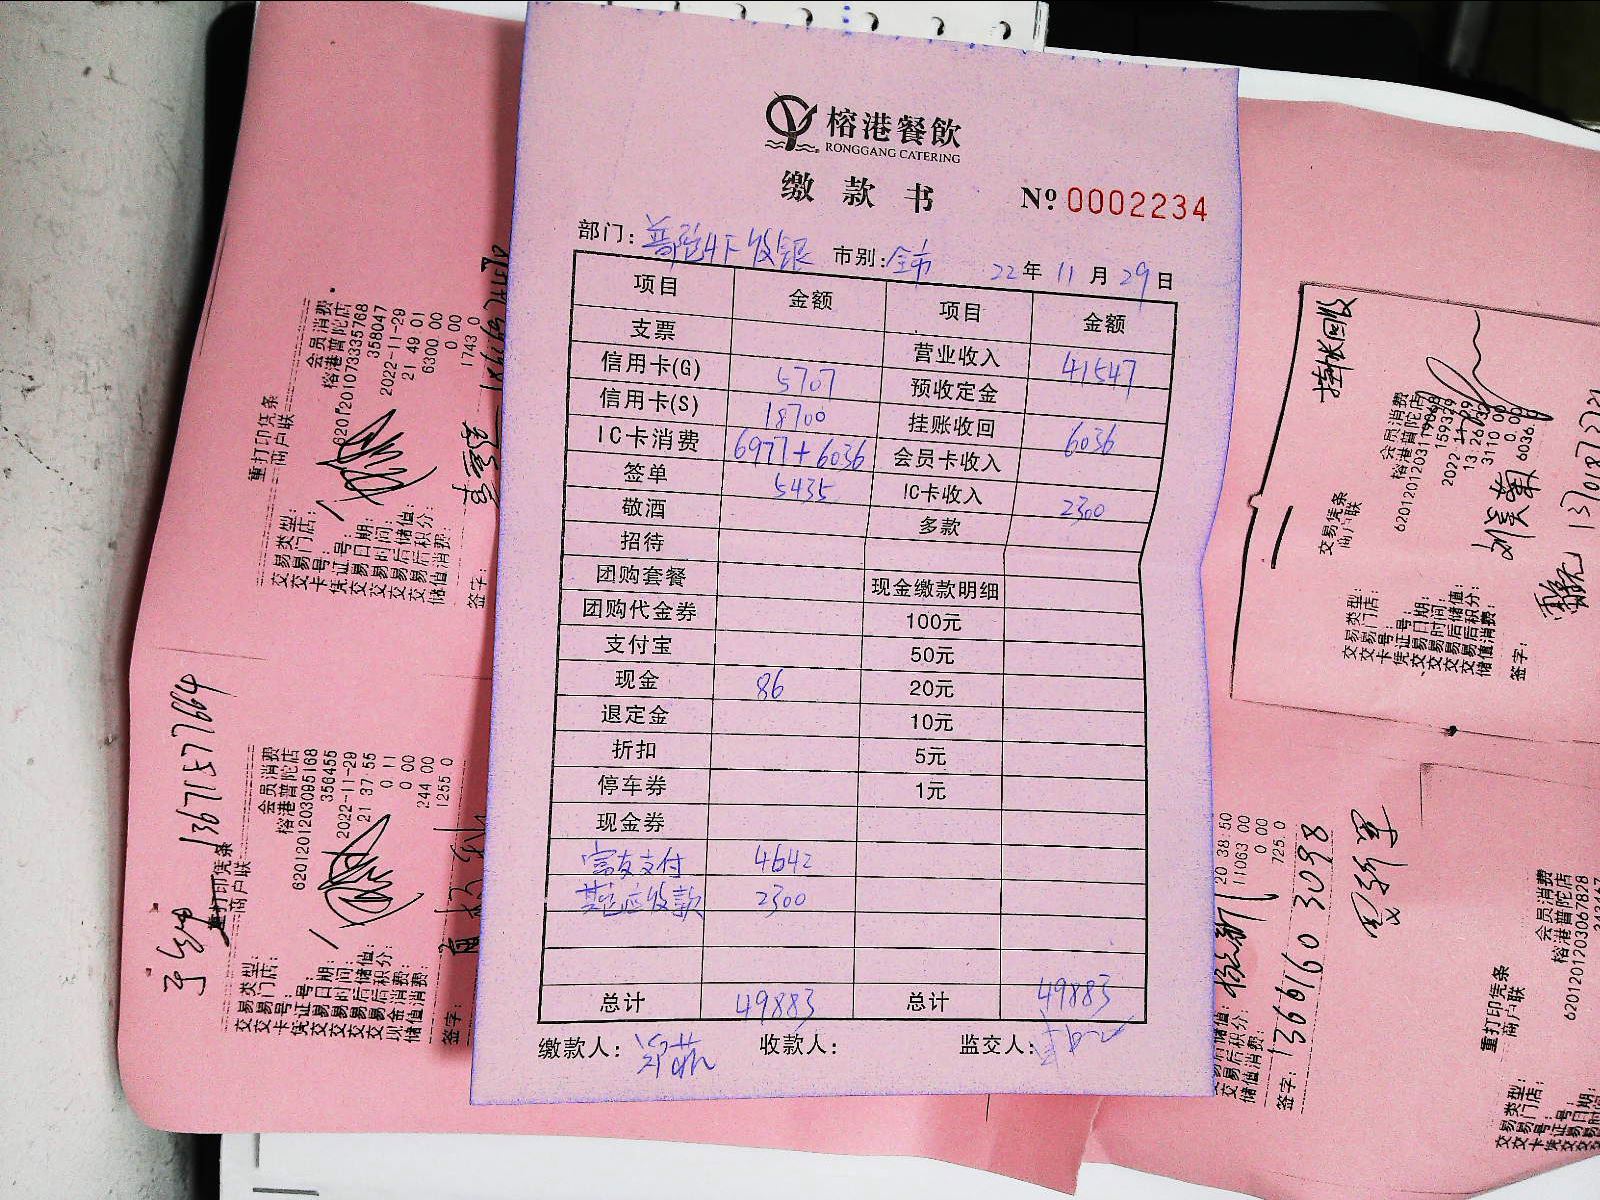 榕港餐飲
RONGGANG CATERING
缴款书 Nº 0002234
部门: 普陀4F收银 市别: 全市 22年11月29日
项目 金额 项目 金额
支票 营业收入 41547
信用卡(G) 5707 预收定金
信用卡(S) 18700 挂账收回 6036
IC卡消费 6977+6036 会员卡收入
签单 5435 IC卡收入 2300
敬酒 多款
招待
团购套餐 现金缴款明细
团购代金券 100元
支付宝 50元
现金 86 20元
退定金 10元
折扣 5元
停车券 1元
现金券
富友支付 4642
其它应收款 2300
总计 49883 总计 49883
缴款人: 收款人: 监交人:
重打印凭条
商户联
交易类型: 会员消费
交易门店: 榕港普陀店
卡号: 6201201073335768
凭证号: 358047
交易日期: 2022-11-29
交易时间: 21 49 01
交易后储值: 6300 00
交易后积分: 0 00
储值消费: 1743 0
签字:
13671577664
重打印凭条
商户联
交易类型: 会员消费
交易门店: 榕港普陀店
卡号: 6201201203095168
凭证号: 356455
交易日期: 2022-11-29
交易时间: 21 37 55
交易后储值: 0 11
交易后积分: 0 00
现金消费: 244 00
储值消费: 1255 0
签字:
挂帐回收
交易凭条
商户联
交易类型: 会员消费
交易门店: 榕港普陀店
卡号:
凭证号: 159329
交易日期:
交易时间:
交易后储值: 3110 00
交易后积分: 0.00
储值消费: 6036.0
签字:
20 38 50
交易后储值: 11063 00
交易后积分: 0 00
储值消费: 725.0
签字: 13661603098
重打印凭条
商户联
交易类型: 会员消费
交易门店: 榕港普陀店
卡号: 6201201203067828
凭证号:
交易日期:
交易时间: